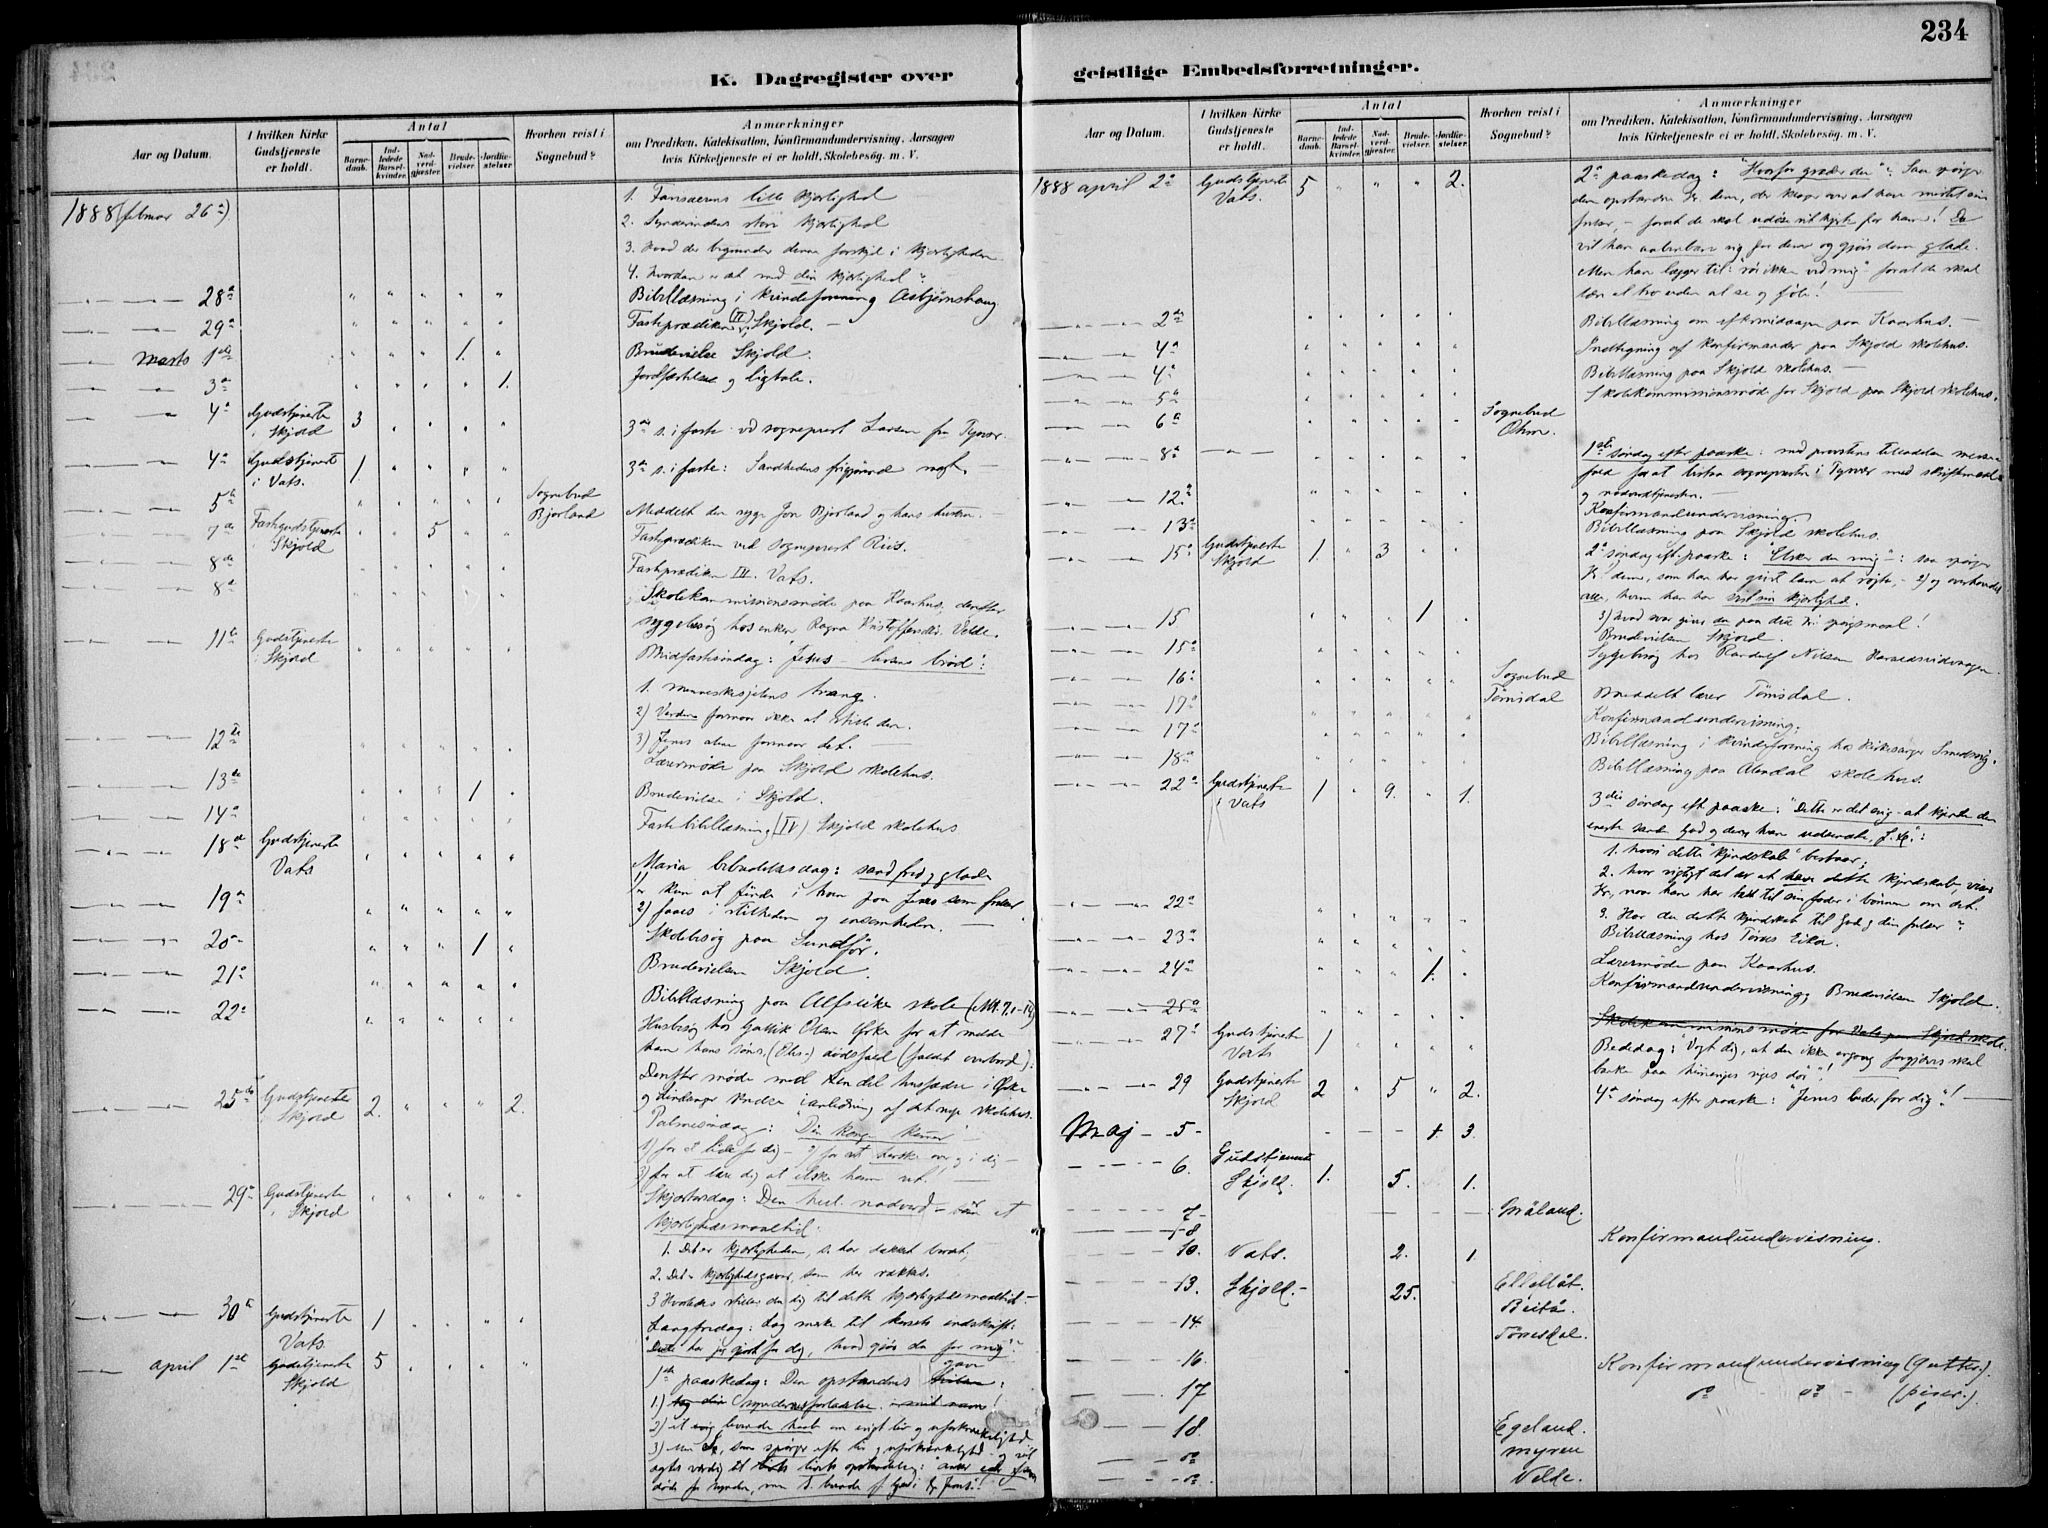 234
K. Dagregister over
geistlige Embedsforretninger.
Aar og Datum.
I hvilken Kirke Gudstjeneste er holdt.
Antal
Barne-daab.
Ind-ledede Barsel-kvinder.
Nad-verd-gjæster.
Brude-vielser.
Jordfæ-stelser.
Hvorhen reist i Sognebud?
Anmærkninger
om Prædiken, Katekisation, Konfirmandundervisning, Aarsagen
hvis Kirketjeneste ei er holdt, Skolebesög. m. V.
1888 (februar 26de)
1. Farisæerens lille kjærlighed
2. Synderindens store kjærlighed
3. Hvad der begrunder denne forskjel i kjærligheden
4. Hvordan er det med din kjærlighed?
28de Bibellæsning i kvindeforening Asbjørnshaug
29de Fasteprædiken (II) Skjold.
Marts 1ste 1. Brudevielse Skjold.
3de 1. Jordfæstelse og ligtale.
4de Gudstjeneste i Skjold 3 3de s. i faste ved sogneprest Larsen fra Tysvær.
4de Gudstjeneste i Vats. 1 3de s. i faste: Sandhedens frigjørende magt.
5te Sognebud Bjorland Meddelt den syge Jon Bjorland og hans hustru.
7de Fastegudstjeneste i Skjold 5 Fasteprædiken ved sogneprest Riis.
8de Fasteprædiken III. Vats.
8de Skolekommissionsmøde paa Kaarhus, derefter
sygebesøg hos enken Ragna Kristoffersdtr. Velde.
11te Gudstjeneste i Skjold Midfastesøndag: "Jesus – livsens brød":
1. Menneskesjelens trang.
2) Verden formaar ikke at stille den.
3) Jesus alene formaar det.
12te Lærermøde paa Skjold skolehus.
13de 1 Brudevielse i Skjold.
14de Fastebibellæsning (IV) Skjold skolehus
18de Gudstjeneste Vats Maria bebudelsesdag: sand fred og glæde
1) er kun at finde i troen paa Jesus som frelser
2) faaes i stilheden og ensomheden.
19de Skolebesøg paa Sundför.
20de 1 Brudevielsen Skjold.
21de Bibellæsning paa Alfseike skole
22de Husbesøg hos Gullik Olsen Ørke for at melde
ham hans søns (Ole) dødsfald (faldt overbord).
Derefter møde med en del husfædre i Ørke
og Lindanger kreds i anledning af det nye skolehus.
25de Gudstjeneste i Skjold 2. 2. Palmesøndag: Din konge kommer
1) for at lide for dig – 2) for at herske over og i dig –
3) for at lære dig at elske ham ret!
29de Gudstjeneste i Skjold Skjærtorsdag: Den hell. nadverd – som et
kjærlighedsmaaltid.
1. Det er kjærligheden, s. har dækket bordet,
2. Det er kjærlighedsgaver, som her rækkes.
3 Hvorledes stiller du dig til dette kjærlighedsmaaltid.
30te Gudstjeneste Vats. 1 Langfredag: Læg mærke til korsets indskrift:
"Dette har jeg gjort for dig, hvad gjør du for mig?"
april 1ste Gudstjeneste Skjold 5 1ste paaskedag: Den opstandnes gave:
1.) Syndernes forladelse
2) et levende haab om evigt liv og uforkrænkelighed
1888 april 2de Gudstjeneste Vats. 5 2. 2den paaskedag: "Hvorfor græder du"? Saa spørger
den opstandne Kr. dem, der klager over at have mistet sin
frelser, – forat de skal udøse sit hjerte for ham! Da
vil han aabenbare sig for dem og gjøre dem glade.
Men han lægger til: "rør ikke ved mig" forat de skal
lære at tro uden at se og føle!
2den Bibellæsning om eftermiddagen paa Kaarhus.
4de Indtegning af konfirmander paa Skjold skolehus.
4de Bibellæsning paa Skjold skolehus.
5te Skolekommissionsmøde for Skjold paa Skjold skolehus.
6te Sognebud
8de 1ste søndag efter paaske: med provstens tilladelse messe-
fald forat bistaa sognepresten i Tysvær med skriftemaal
og nadverdtjenesten.
12te Konfirmandundervisning.
13de Bibellæsning paa Skjold skolehus.
15de Gudstjeneste Skjold 1. 3 2den søndag eft. paaske: "Elsker du mig": saa spørger
Kr. 1) dem, som han har givet lam at røgte, – 2) og overhovedet
alle, hvem han har vist sin kjærlighed.
3) hvad svar giver du paa dette Kr. spørgsmaal!
15 1 Brudevielsen Skjold.
15de Sygebesøg hos Randulf Nilsen
16de Sognebud Tømsdal Meddelt lærer Tömsdal.
17de Konfirmandundervisning.
17de Bibellæsning i kvindeforening hos kirkesanger Smedsvig.
18de Bibellæsning paa Alendal skolehus.
22de Gudstjeneste i Vats 1 9. 1. 3die søndag eft. paaske: "Dette er det evige at kjende den
eneste sande Gud og den han udsendte, J. K.":
1. hvori dette "kjendskab" bestaar;
2. hvor vigtigt det er at have dette kjendskab, viser
Kr., naar han har bedt til sin fader i bønnen om det.
3. Har du dette kjendskab til Gud og din frelser?
22de Bibellæsning hos Eika.
23de Lærermøde paa Kaarhus.
24de 1. Konfirmandundervisning; Brudevielsen Skjold.
25de Skolekommissionsmøde for Vats paa Skjold skole.
27de Gudstjeneste Vats 1 Bededag: "Vogt dig, at du ikke engang forgjæves skal
banke paa himmeriges riges dør"!
29 Gudstjeneste Skjold 2 5 2. 4de søndag efter paaske: "Jesus beder for dig"!
Maj 5 1. 3.
6. Gudstjeneste Skjold. 1. 5. 1.
7 Måland.
8
10. Vats. 2. 1 Konfirmandundervisning.
13. Skjold. 25.
14. Tömsdal.
16. Konfirmandundervisning (Gutter).
17 do do (piger.)
18 Egeland.
do Myren
do Velde.